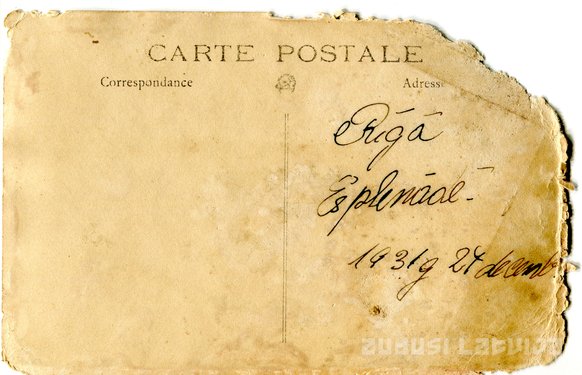 CARTE POSTALE
Correspondance
Adresse
Rīgā
Esplanādē.
1931 g 24 decemb
zudusi Latvija